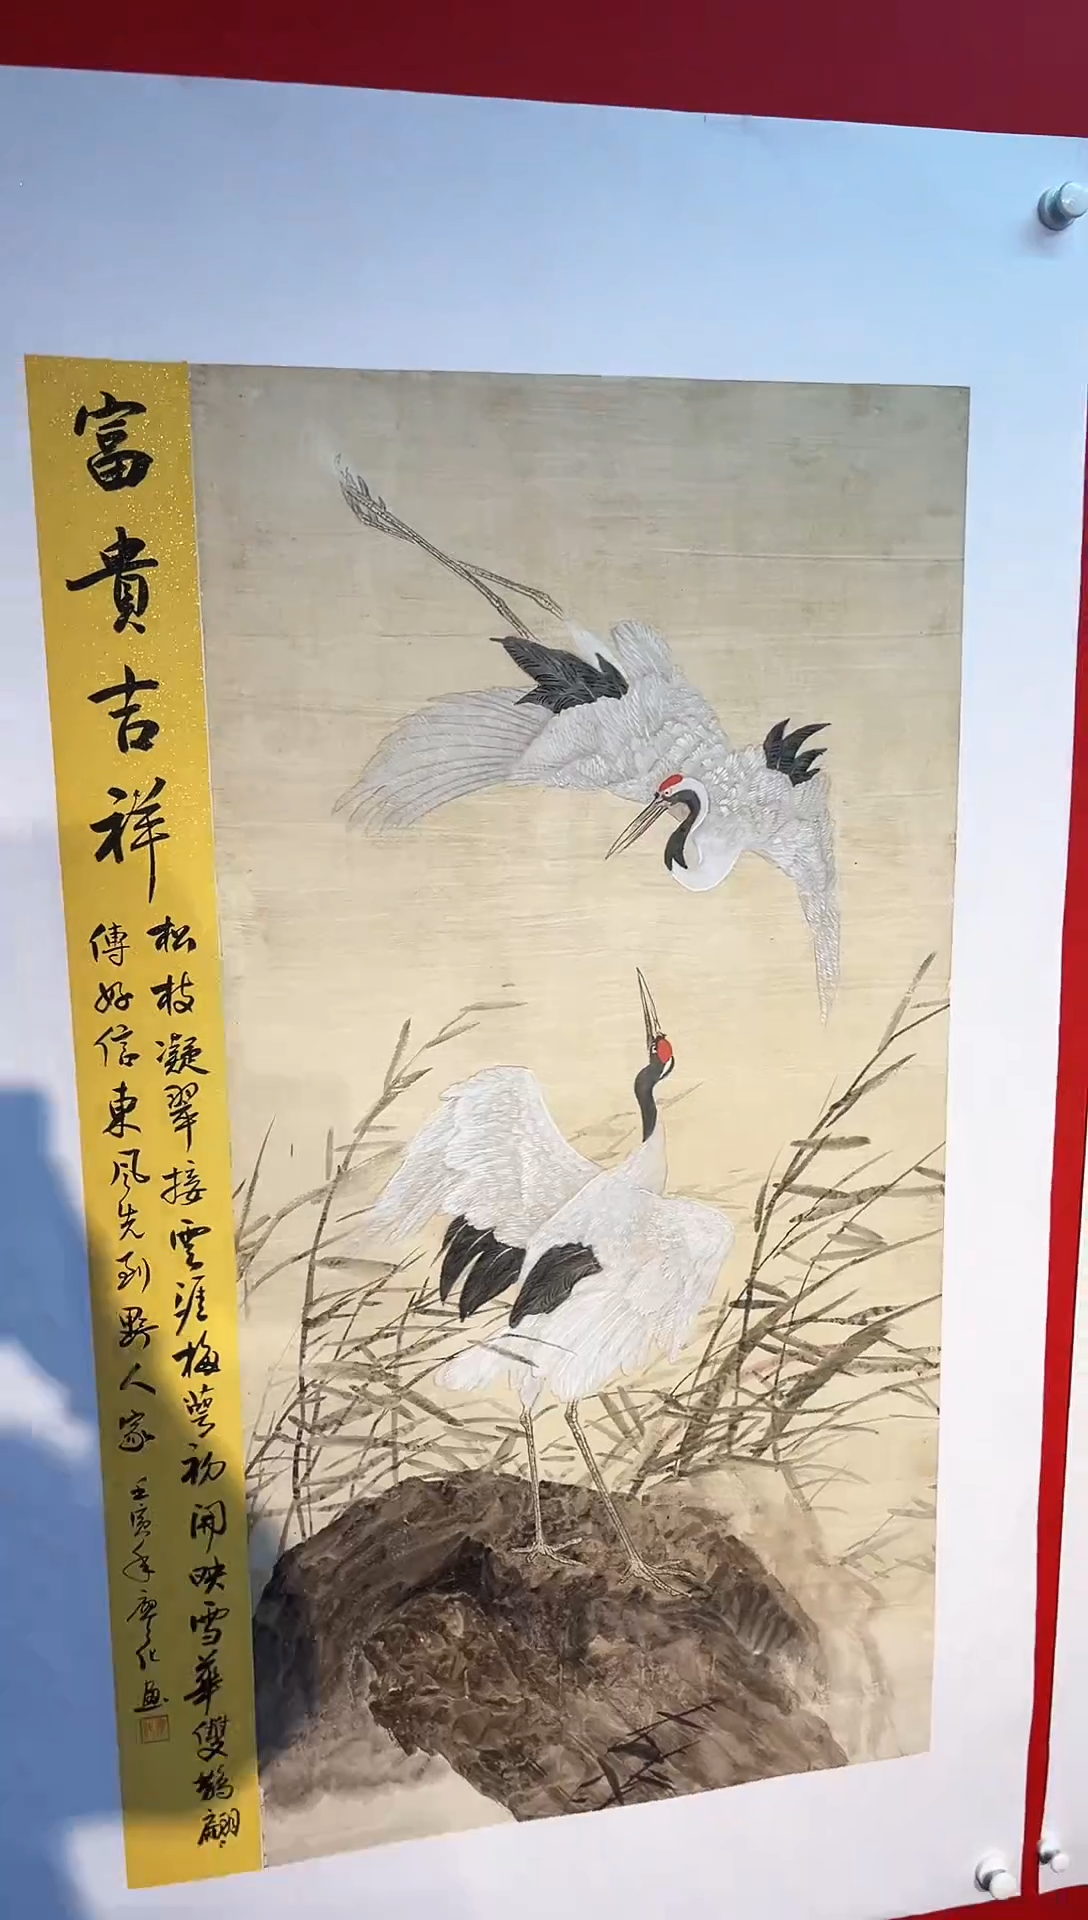 富貴吉祥
松枝凝翠接雲涯梅萼初開映雪華雙鵲翩
傳好信東風先到野人家
壬寅年廖化画